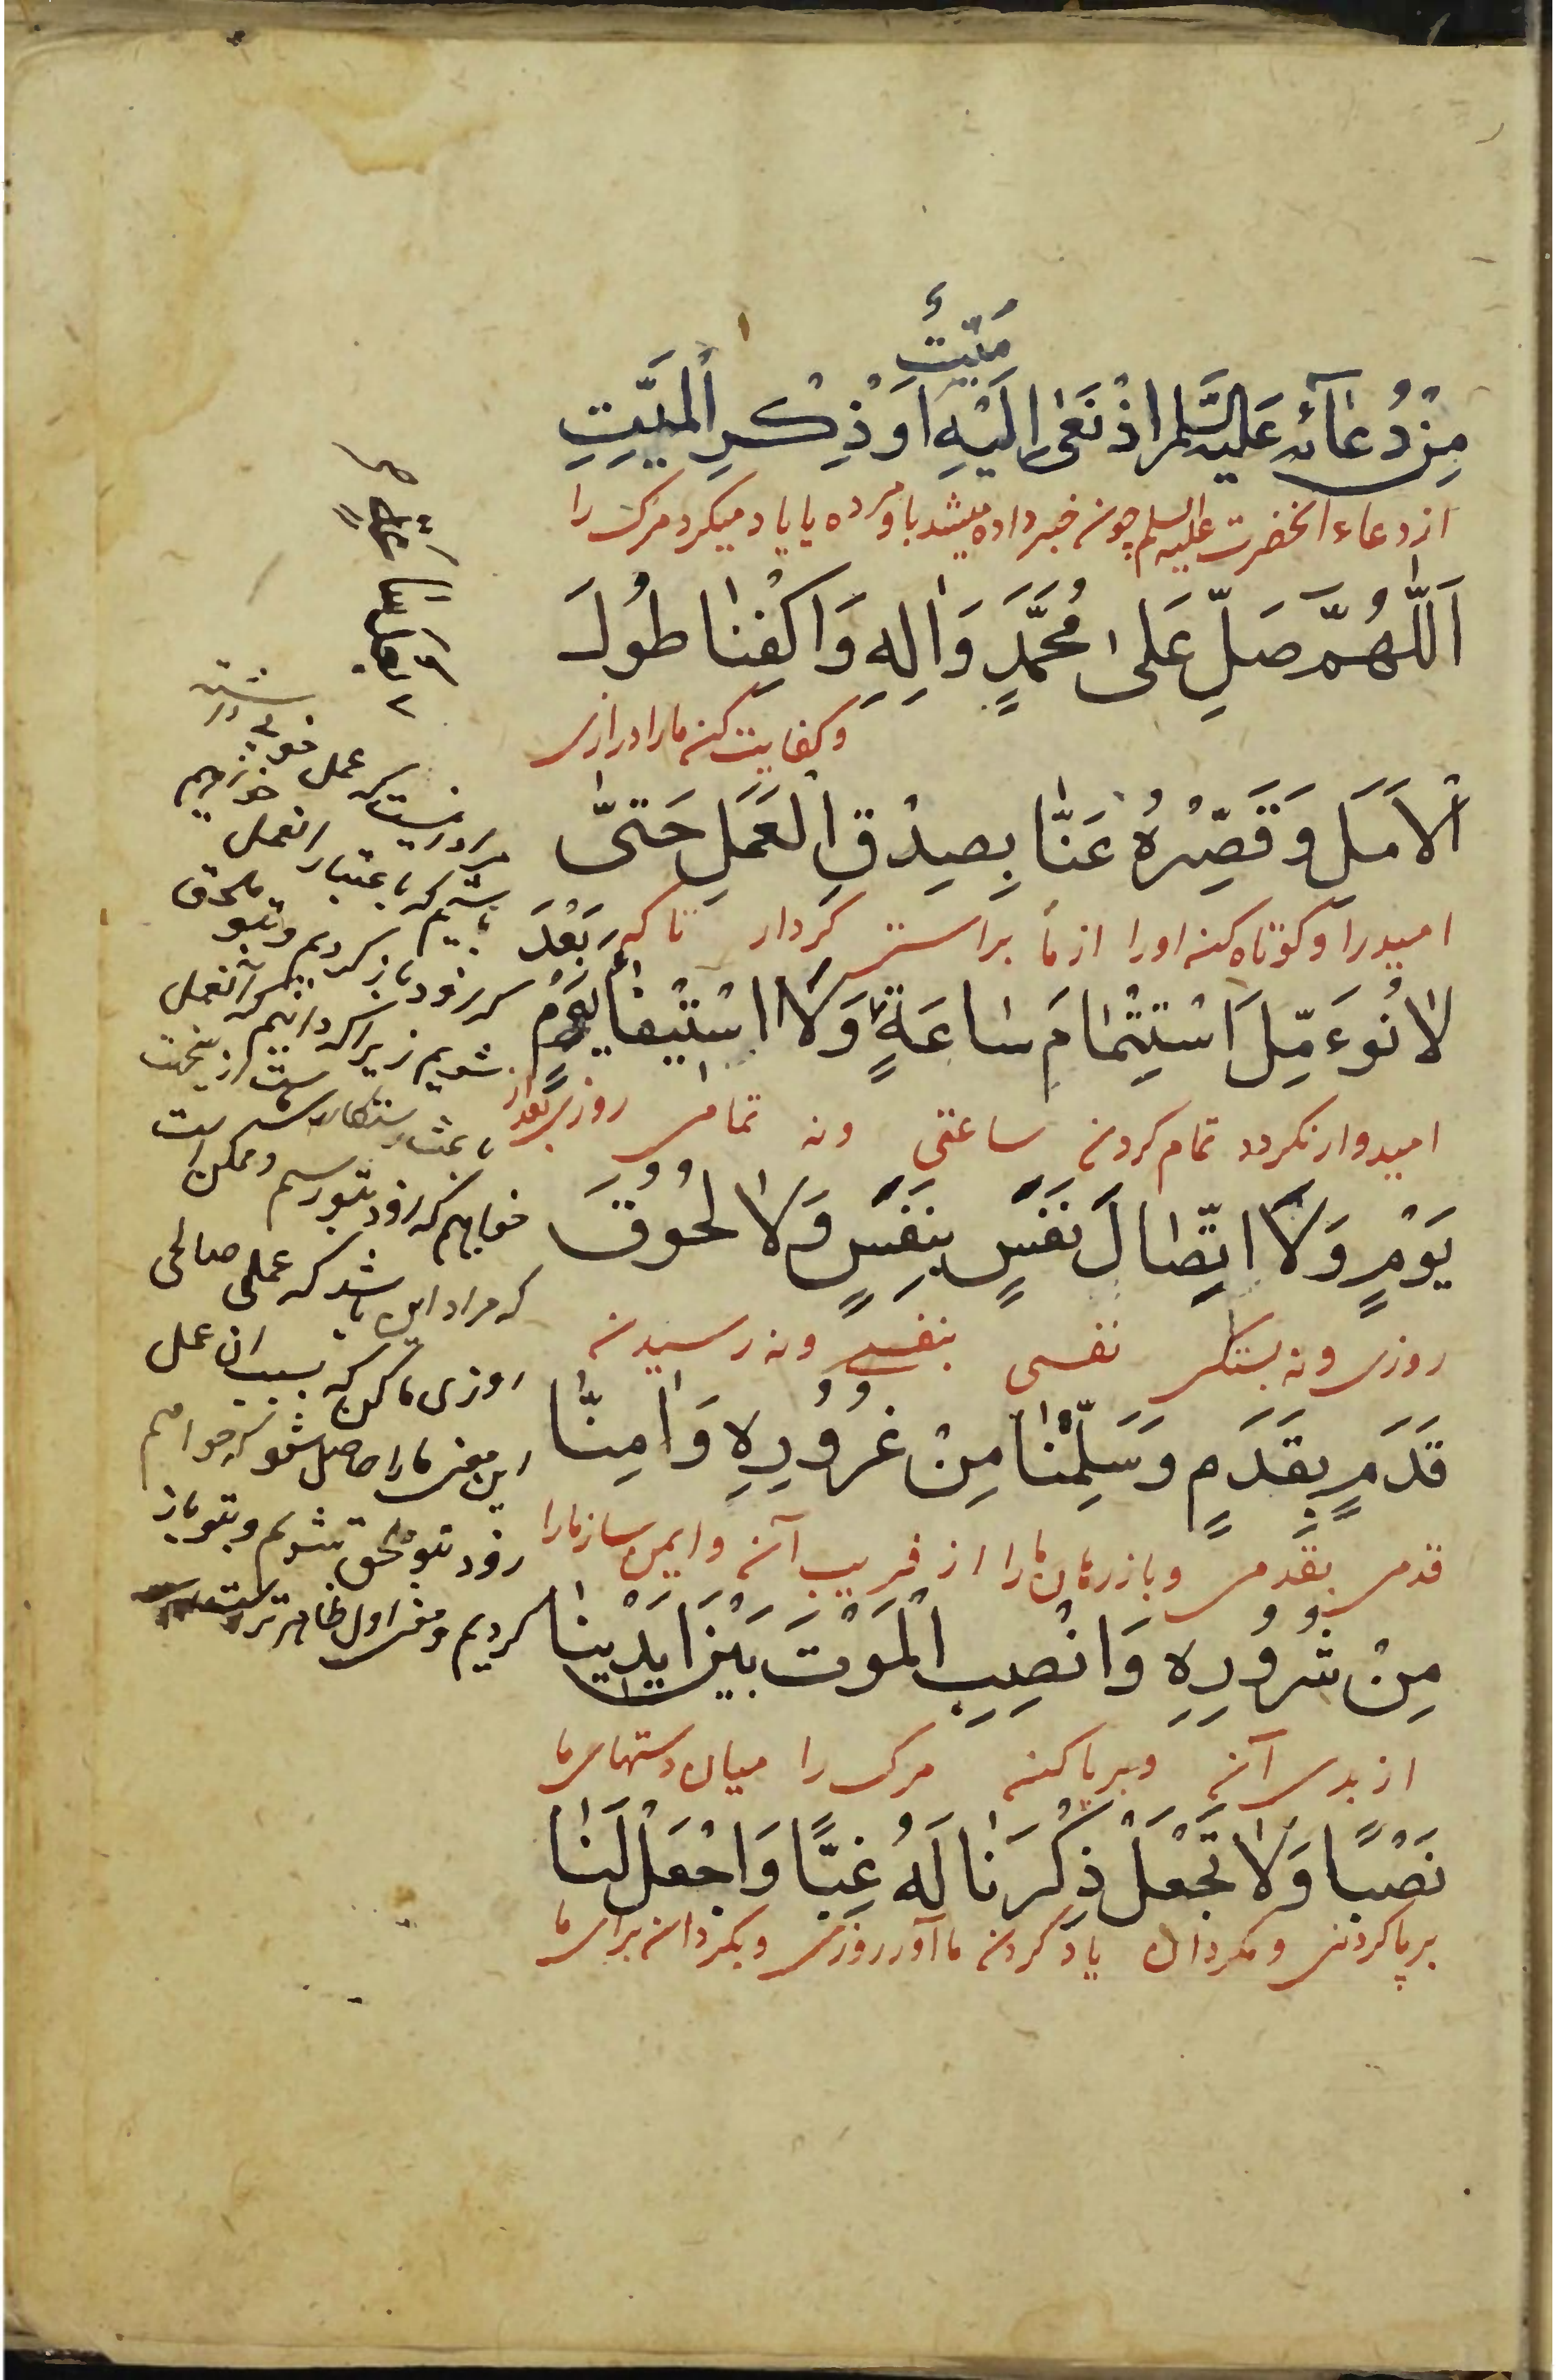 مَیِّتٌ
مِنْ دُعَآئِهِ عَلَیْهِ السَّلَم اِذْ نُعِیَ اِلَیْهِ اَوْ ذِکْرِ الْمَیِّتِ
از دعاء انحضرت علیه السلم چون خبر داده میشد باو مرده یا یاد میکرد مرک را
اَللّٰهُمَّ صَلِّ عَلٰی مُحَمَّدٍ وَاٰلِهِ وَاکْفِنٰا طُولَ
و کفایت کن ما را درازی
الْاَمَلِ وَقَصِّرْهُ عَنّٰا بِصِدْقِ الْعَمَلِ حَتّٰی
امید را و کوتاه کن او را از ما براستی کردار تا که
بَعْدَ
لٰا نُوءَمِّلَ اسْتِتْمٰامَ سٰاعَةٍ وَلَا اسْتیفٰاءَ یَوْمٍ
امیدوار نکردد تمام کردن ساعتی ونه تمامی روزی بعد از
یَوْمٍ وَلَا اتِّصٰالَ نَفَسٍ بِنَفَسٍ وَلٰا لُحُوقَ
روزی ونه بستکی نفسی بنفسی ونه رسیدن
قَدَمٍ بِقَدَمٍ وَسَلِّمْنٰا مِنْ غُرُورِهِ وَاٰمِنّٰا
قدمی بقدمی و باز رهان ما را از فریب آن و ایمن ساز ما را
مِنْ شُرُورِهِ وَانْصِبِ الْمَوْتَ بَیْنَ اَیْدینٰا
از بدی آن و برپا کن مرک را میان دستهای ما
نَصْبًا وَلٰا تَجْعَلْ ذِکْرَنٰا لَهُ غِبًّا وَاجْعَلْ لَنٰا
برپا کردنی و مکردان یاد کردن ما آورا روزی و بکردان برای ما
مراد اینست که عمل خوبی داشته
باشیم که باعتبار انعمل
سر زود باز کردیم و بتو ملحق
شویم زیرا که دانیم که آنعمل
باعث رستکاریست از ینجهت
خواهیم که زود بتو رسیم و ممکن است
که مراد این باشد که عملی صالحی
روزی ما کن که بسبب ان عمل
این معنی ما را حاصل شود که خواهیم
زود بتو ملحق شویم و بتو باز
کردیم و معنی اول ظاهرتر است